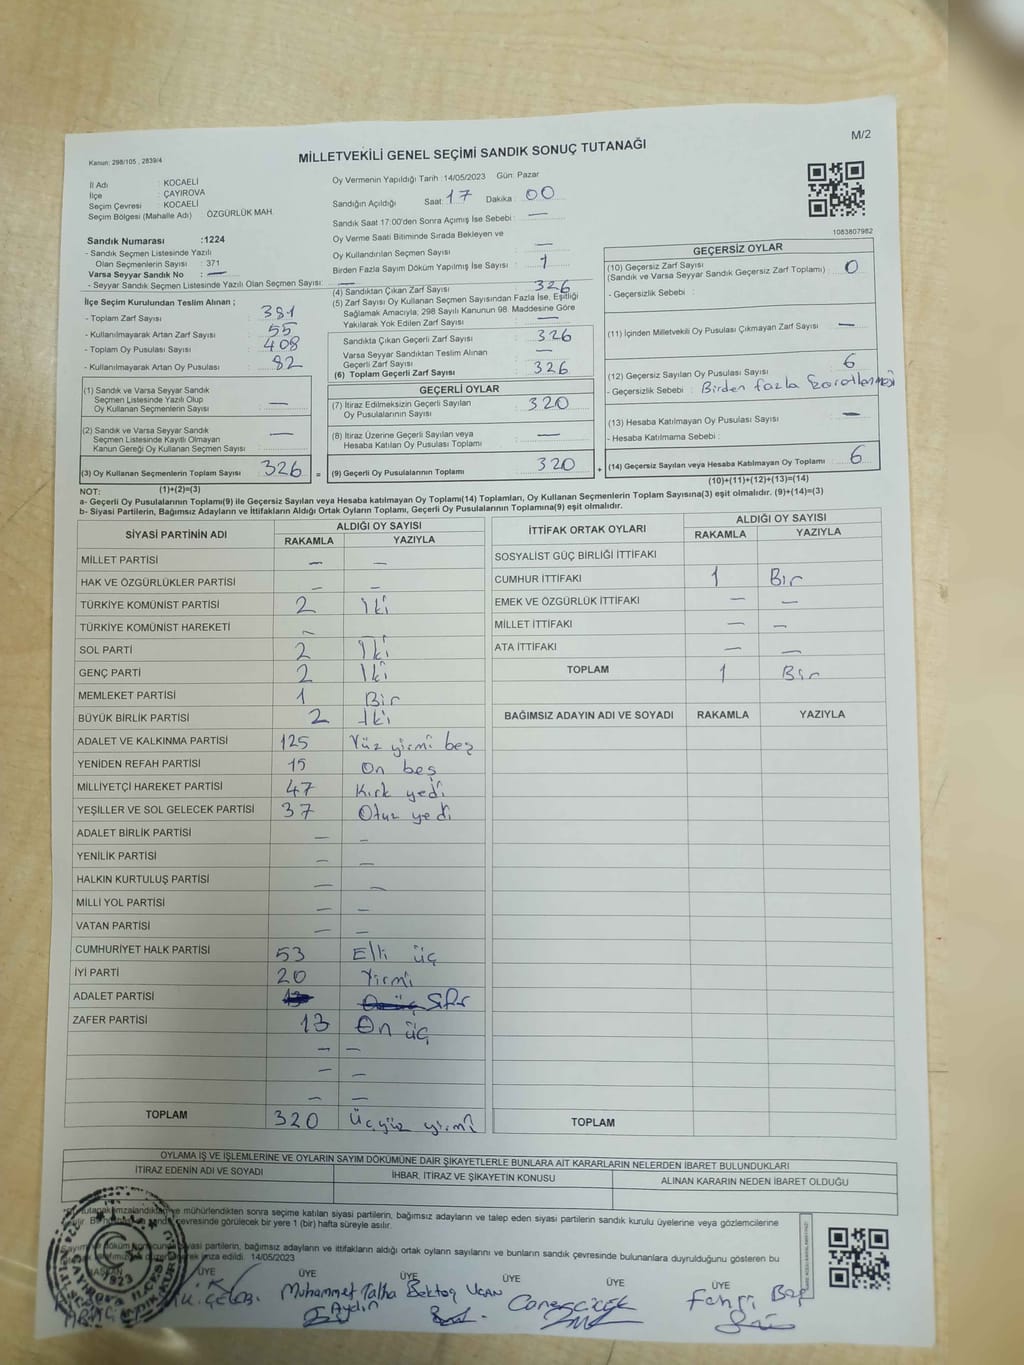 M/2
Kanun: 298/105 , 2839/4
MİLLETVEKİLİ GENEL SEÇİMİ SANDIK SONUÇ TUTANAĞI
İl Adı : KOCAELİ
İlçe : ÇAYIROVA
Seçim Çevresi : KOCAELİ
Seçim Bölgesi (Mahalle Adı) ÖZGÜRLÜK MAH.
Sandık Numarası :1224
- Sandık Seçmen Listesinde Yazılı
Olan Seçmenlerin Sayısı : 371
Varsa Seyyar Sandık No : —
- Seyyar Sandık Seçmen Listesinde Yazılı Olan Seçmen Sayısı: —
İlçe Seçim Kurulundan Teslim Alınan ;
- Toplam Zarf Sayısı : 381
- Kullanılmayarak Artan Zarf Sayısı : 55
- Toplam Oy Pusulası Sayısı : 408
- Kullanılmayarak Artan Oy Pusulası : 82
(1) Sandık ve Varsa Seyyar Sandık
Seçmen Listesinde Yazılı Olup
Oy Kullanan Seçmenlerin Sayısı : —
(2) Sandık ve Varsa Seyyar Sandık
Seçmen Listesinde Kayıtlı Olmayan
Kanun Gereği Oy Kullanan Seçmen Sayısı : —
(3) Oy Kullanan Seçmenlerin Toplam Sayısı 326 =
(1)+(2)=(3)
Oy Vermenin Yapıldığı Tarih :14/05/2023 Gün: Pazar
Sandığın Açıldığı Saat: 17 Dakika : 00
Sandık Saat 17:00'den Sonra Açımış İse Sebebi : —
Oy Verme Saati Bitiminde Sırada Bekleyen ve
Oy Kullandırılan Seçmen Sayısı : —
Birden Fazla Sayım Döküm Yapılmış İse Sayısı : 1
(4) Sandıktan Çıkan Zarf Sayısı : 326
(5) Zarf Sayısı Oy Kullanan Seçmen Sayısından Fazla İse, Eşitliği
Sağlamak Amacıyla; 298 Sayılı Kanunun 98. Maddesine Göre
Yakılarak Yok Edilen Zarf Sayısı : —
Sandıkta Çıkan Geçerli Zarf Sayısı : 326
Varsa Seyyar Sandıktan Teslim Alınan
Geçerli Zarf Sayısı : —
(6) Toplam Geçerli Zarf Sayısı : 326
GEÇERLİ OYLAR
(7) İtiraz Edilmeksizin Geçerli Sayılan
Oy Pusulalarının Sayısı : 320
(8) İtiraz Üzerine Geçerli Sayılan veya
Hesaba Katılan Oy Pusulası Toplamı : —
(9) Geçerli Oy Pusulalarının Toplamı : 320 +
1083807982
GEÇERSİZ OYLAR
(10) Geçersiz Zarf Sayısı
(Sandık ve Varsa Seyyar Sandık Geçersiz Zarf Toplamı) : 0
- Geçersizlik Sebebi :
(11) İçinden Milletvekili Oy Pusulası Çıkmayan Zarf Sayısı : —
(12) Geçersiz Sayılan Oy Pusulası Sayısı : 6
- Geçersizlik Sebebi : Birden fazla
(13) Hesaba Katılmayan Oy Pusulası Sayısı : —
- Hesaba Katılmama Sebebi :
(14) Geçersiz Sayılan veya Hesaba Katılmayan Oy Toplamı : 6
(10)+(11)+(12)+(13)=(14)
NOT:
a- Geçerli Oy Pusulalarının Toplamı(9) ile Geçersiz Sayılan veya Hesaba katılmayan Oy Toplamı(14) Toplamları, Oy Kullanan Seçmenlerin Toplam Sayısına(3) eşit olmalıdır. (9)+(14)=(3)
b- Siyasi Partilerin, Bağımsız Adayların ve İttifakların Aldığı Ortak Oyların Toplamı, Geçerli Oy Pusulalarının Toplamına(9) eşit olmalıdır.
SİYASİ PARTİNİN ADI ALDIĞI OY SAYISI
RAKAMLA YAZIYLA
MİLLET PARTİSİ — —
HAK VE ÖZGÜRLÜKLER PARTİSİ — —
TÜRKİYE KOMÜNİST PARTİSİ 2 İki
TÜRKİYE KOMÜNİST HAREKETİ —
SOL PARTİ 2 İki
GENÇ PARTİ 2 İki
MEMLEKET PARTİSİ 1 Bir
BÜYÜK BİRLİK PARTİSİ 2 İki
ADALET VE KALKINMA PARTİSİ 125 Yüz yirmi beş
YENİDEN REFAH PARTİSİ 15 On beş
MİLLİYETÇİ HAREKET PARTİSİ 47 Kırk yedi
YEŞİLLER VE SOL GELECEK PARTİSİ 37 Otuz yedi
ADALET BİRLİK PARTİSİ — —
YENİLİK PARTİSİ — —
HALKIN KURTULUŞ PARTİSİ — —
MİLLİ YOL PARTİSİ — —
VATAN PARTİSİ — —
CUMHURİYET HALK PARTİSİ 53 Elli üç
İYİ PARTİ 20 Yirmi
ADALET PARTİSİ Sıfır
ZAFER PARTİSİ 13 On üç
— —
— —
— —
TOPLAM 320 Üçyüz yirmi
İTTİFAK ORTAK OYLARI ALDIĞI OY SAYISI
RAKAMLA YAZIYLA
SOSYALİST GÜÇ BİRLİĞİ İTTİFAKI
CUMHUR İTTİFAKI 1 Bir
EMEK VE ÖZGÜRLÜK İTTİFAKI — —
MİLLET İTTİFAKI — —
ATA İTTİFAKI — —
TOPLAM 1 Bir
BAĞIMSIZ ADAYIN ADI VE SOYADI RAKAMLA YAZIYLA
TOPLAM
OYLAMA İŞ VE İŞLEMLERİNE VE OYLARIN SAYIM DÖKÜMÜNE DAİR ŞİKAYETLERLE BUNLARA AİT KARARLARIN NELERDEN İBARET BULUNDUKLARI
İTİRAZ EDENİN ADI VE SOYADI İHBAR, İTİRAZ VE ŞİKAYETİN KONUSU ALINAN KARARIN NEDEN İBARET OLDUĞU
mühürlendikten sonra seçime katılan siyasi partilerin, bağımsız adayların ve talep eden siyasi partilerin sandık kurulu üyelerine veya gözlemcilerine
çevresinde görülecek bir yere 1 (bir) hafta süreyle asılır.
siyasi partilerin, bağımsız adayların ve ittifakların aldığı ortak oyların sayılarını ve bunların sandık çevresinde bulunanlara duyrulduğunu gösteren bu
imza edildi. 14/05/2023
BAŞKAN ÜYE ÜYE ÜYE ÜYE ÜYE ÜYE
Muhammet Talha Aydın Bektaş UÇAN